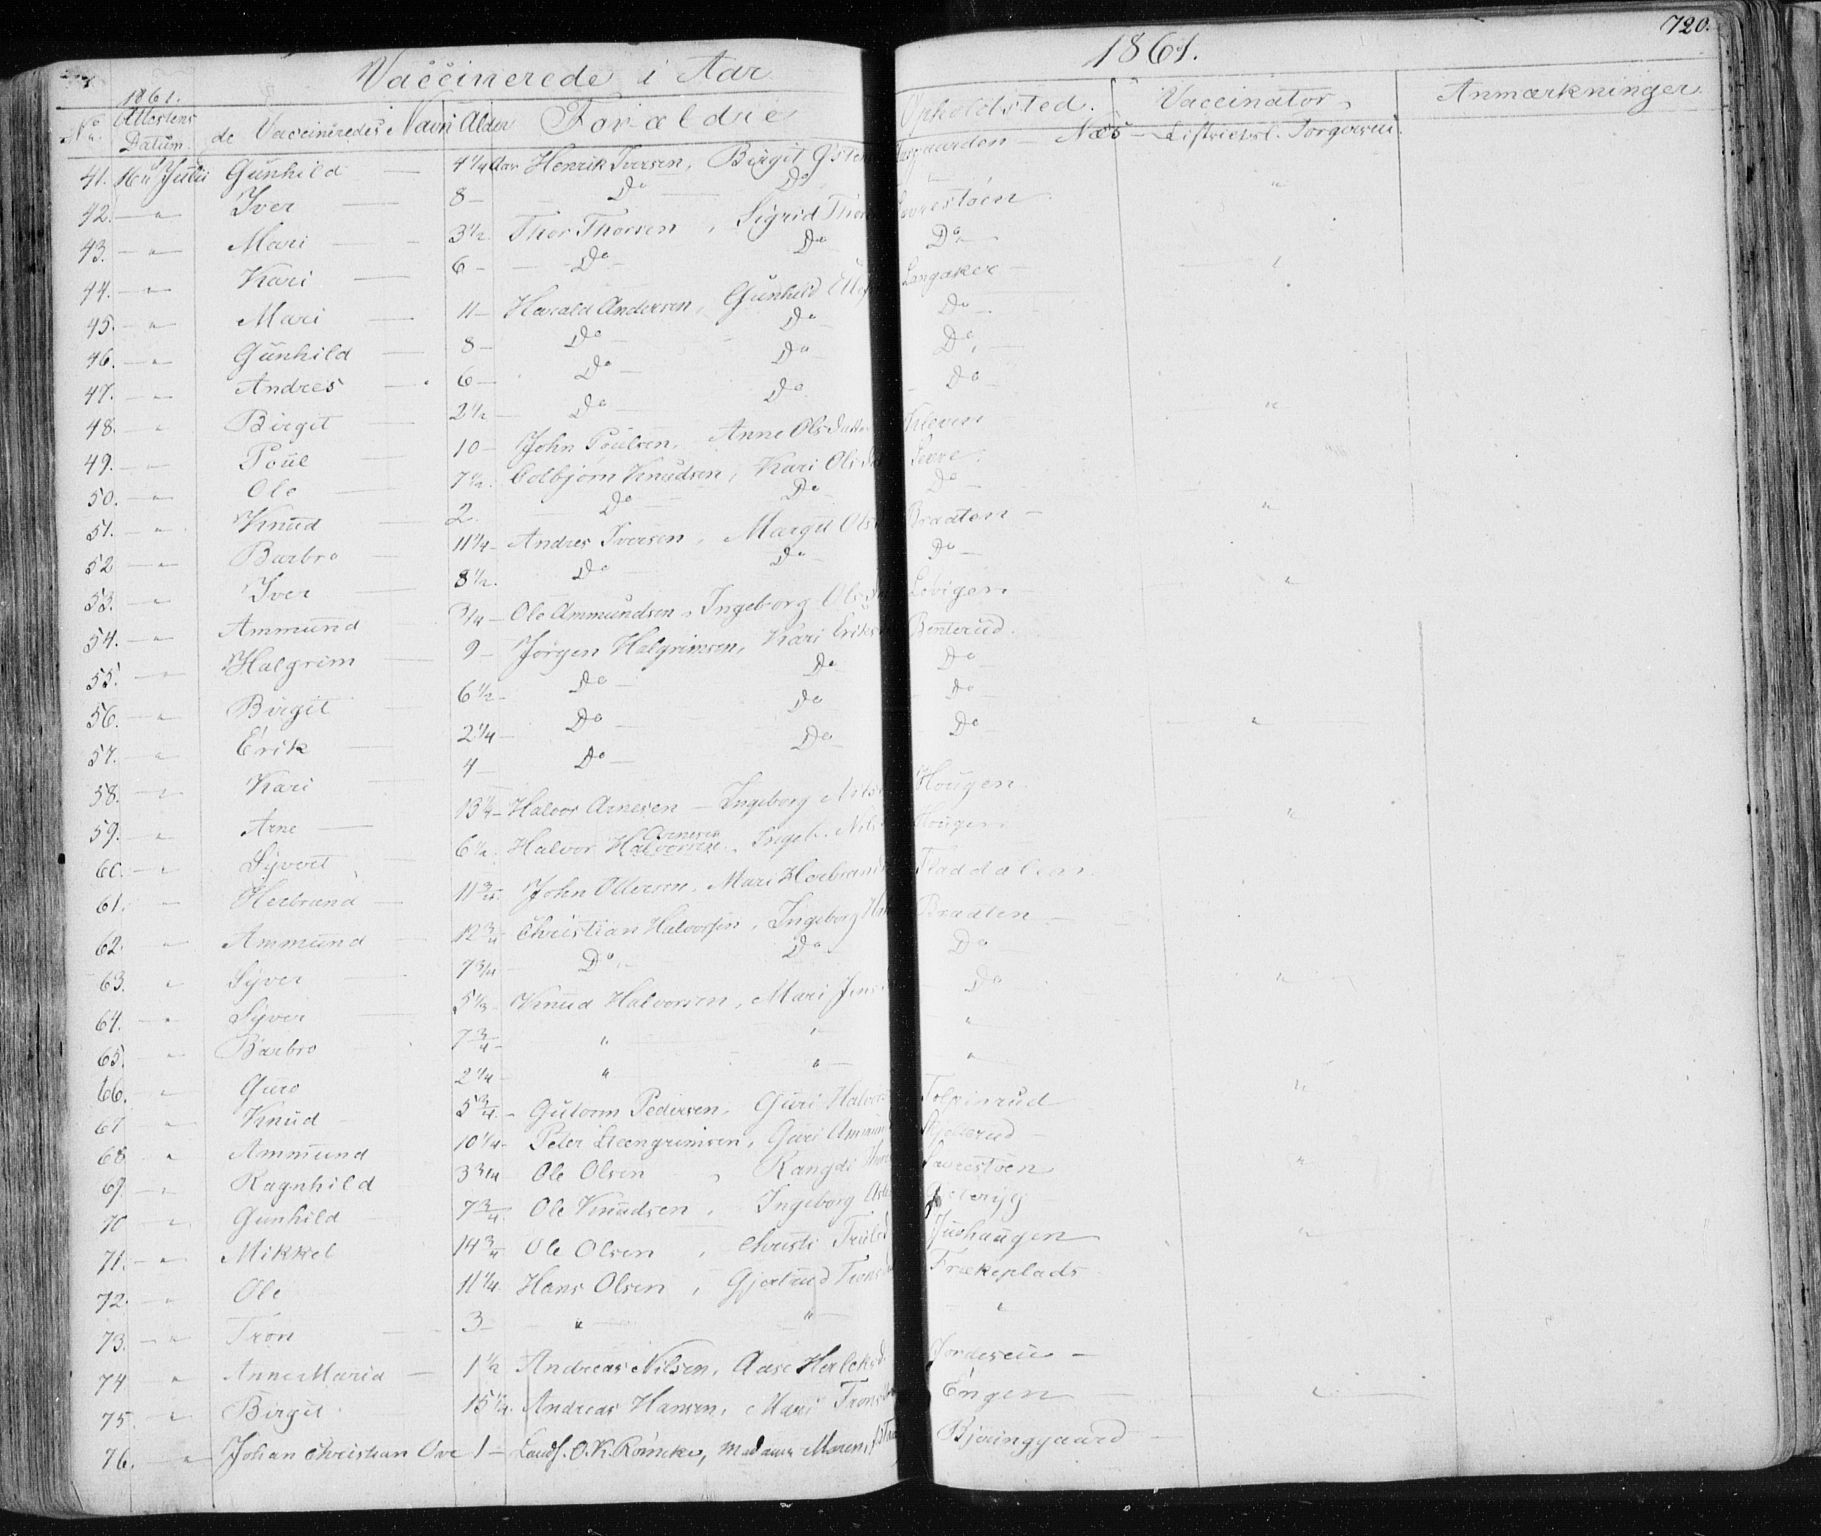 720.
Vaccinerede i Aar 1861.
No. 1861. Attestens Datum. de Vaccineredes Navn Alder Forældre Opholdsted. Vaccinator. Anmærkninger
41. 16de Julii Gunhild — 4 1/4 Aar Henrik Iversen, Birgit — Næs — Districtsl. Torgersen.
42. — " Iver — 8 — Do Do — "
43. — " Mari — 3 1/2 Thor Thorsen, Sigrid Savrestøen
44. — " Kari — 6 — Do Do Do
45. — " Mari — 11 — Harald Andersen, Gunhild Langaker —
46. — " Gunhild — 8 — Do Do Do
47. — " Andres — 6 — Do Do Do
48. — " Birgit — 2 1/2 — Do Do Do
49. — " Poul 10 — John Poulsen, Anne Olsdatter Kleven "
50. — " Ole — 7 1/2. Colbjørn Knudsen, Kari
51. — " Knud — 2. Do Do Do
52 — " Barbro — 11 1/4 — Andres Iversen, Margit Ols Braaten — "
53. — " Iver — 8 1/2. Do Do Do
54. — " Ammund 3/4 — Ole Ammundsen, Ingeborg Løvigen — "
55. — " Halgrim 9 — Jørgen Halgrimsen, Kari Eriks Benterud.
56. — " Birgit — 6 1/2 — Do Do Do
57. — " Erik — 2 1/4 — Do Do Do
58. — " Kari 4 — Do Do Do "
59. — " Arne — 13 1/4 — Halvor Arnesen — Ingeborg Nils Hougen
60. — " Syvert 6 1/2. Halvor Halvorsen Arnesen, Ingeb. Nils Hougen "
61. — " Herbrand — 11 3/4 John Ottersen, Mari Herbrands
62. — " Ammund — 12 3/4 Christian Halvorsen, Ingeborg Braaten —
63. " Syver 7 3/4 — Do Do Do
64. — " Syver 5 1/2 — Knud Halvorsen, Mari Jens Do "
65. " Barbro 7 3/4 — " " "
66. — " Guro 2 1/4 — " " "
67 — " Knud 5 3/4 — Gutorm Pedersen, Guri Halvors Tolpinrud "
68. " Ammund 10 1/4 — Peter Steengrimsen, Guri Ammund
69. — " Ragnhild 3 3/4 Ole Olsen, Rangdi Savrestøen "
70 — " Gunhild — 7 3/4. Ole Knudsen, Ingeborg
71. — " Mikkel 14 3/4 Ole Olsen, Christi Truls "
72. — " Ole 11 1/4 Hans Olsen, Gjertrud Trons Frækeplads
73. — " Tron 3 — " " "
74 " Anne Maria — 1 1/2 Andreas Nilsen, Aase —
75. — " Birgit 15 1/4. Andreas Hansen, Mari Trons Engen — "
76. — " Johan Christian Ove 1 — O. K. Madame Maren, Bjøringgaard —